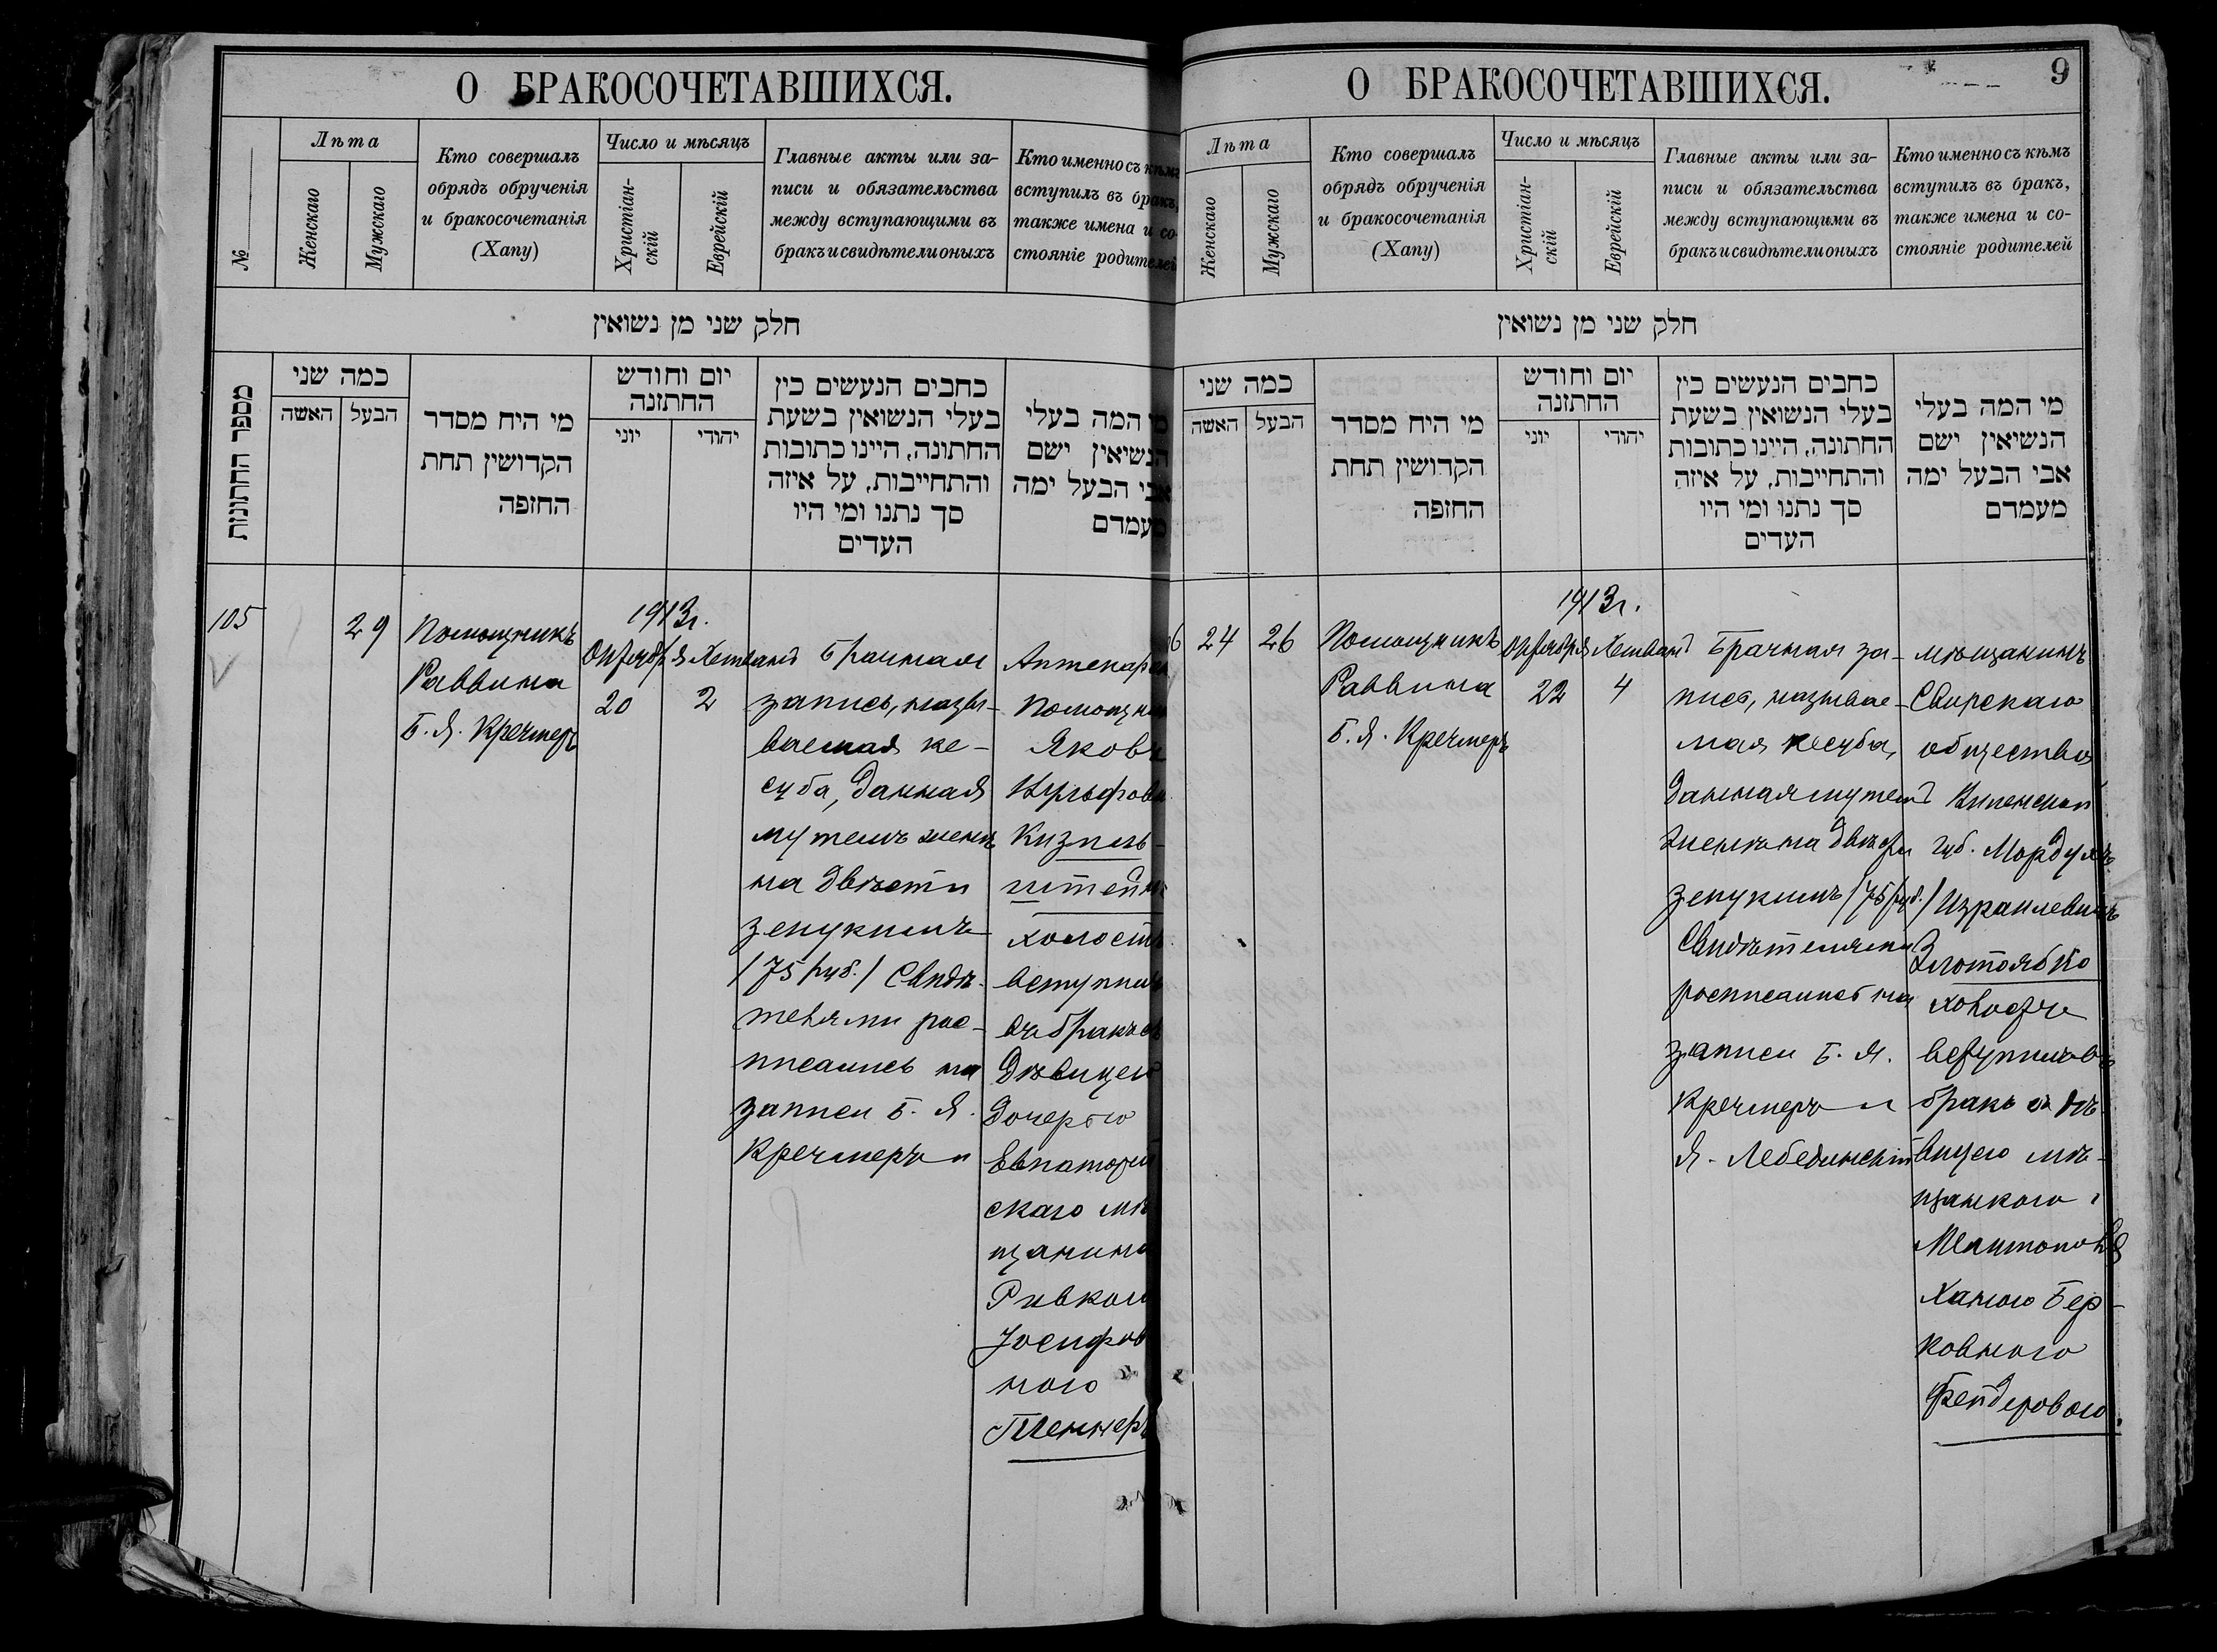 О БРАКОСОЧЕТАВШИХСЯ.
№
Лѣта
Женскаго
Мужскаго
Кто совершалъ
обрядъ обрученія
и бракосочетанія
(Хапу)
Число и мѣсяцъ
Христіан-
скій
Еврейскій
Главные акты или за-
писи и обязательства
между вступающими въ
бракъ и свидѣтели оныхъ
Кто именно съ кѣмъ
вступилъ въ бракъ,
также имена и со-
стояніе родителей
חלק שני מן נשואין
מספר החתונות
כמה שני
האשה
הבעל
מי היח מסדר
הקדושין תחת
החזפה
יום וחודש
החתזנה
יוני
יהודי
כחבים הנעשים כין
בעלי הנשואין בשעת
החתונה, היינו כתובות
והתחייבות, על איזה
סך נתנו ומי היו
העדים
מי המה בעלי
הנשיאין ישם
אבי הבעל ימה
מעמדם
105
29
Помощникъ
Раввина
Б. Я. Кречмеръ
1913г.
Октября Хешванъ
20 2
Брачная
запись, назы-
ваемая ке-
суба, данная
мужемъ женѣ
на двѣсти
зекукимъ
/75 руб./ Свидѣ-
телями рос-
писались на
записи Б. Я.
Кречмеръ и
Аптекарск
помощни
Яковъ
Кизиль-
штейнъ
холостъ
вступилъ
въ бракъ съ
дѣвицею
дочерью
Евпаторій
скаго мѣ
щанина
Ривкою
Іосифов
ною
Теннеръ
О БРАКОСОЧЕТАВШИХСЯ.
9
Лѣта
Женскаго
Мужскаго
Кто совершалъ
обрядъ обрученія
и бракосочетанія
(Хапу)
Число и мѣсяцъ
Христіан-
скій
Еврейскій
Главные акты или за-
писи и обязательства
между вступающими въ
бракъ и свидѣтели оныхъ
Кто именно съ кѣмъ
вступилъ въ бракъ,
также имена и со-
стояніе родителей
חלק שני מן נשואין
כמה שני
האשה
הבעל
מי היח מסדר
הקדושין תחת
החזפה
יום וחודש
החתזנה
יוני
יהודי
כחבים הנעשים כין
בעלי הנשואין בשעת
החתונה, היינו כתובות
והתחייבות, על איזה
סך נתנו ומי היו
העדים
מי המה בעלי
הנשיאין ישם
אבי הבעל ימה
מעמדם
6
24
26
Помощникъ
Раввина
Б. Я. Кречмеръ
1913г.
Октября Хешванъ
22 4
Брачная за-
пись, называе-
мая кесуба,
данная мужемъ
женѣ на двѣсти
зекукимъ /75 руб./
Свидѣтелями
росписались на
записи Б. Я.
Кречмеръ и
Я. Лебединскій
мѣщанинъ
Свирскаго
общества
Виленской
губ. Мордухъ
Израилевичъ
Злотоябко
холостъ
вступилъ въ
бракъ съ дѣ-
вицею мѣ-
щанкою
Ханою Бер-
ковною
Фендеровою.